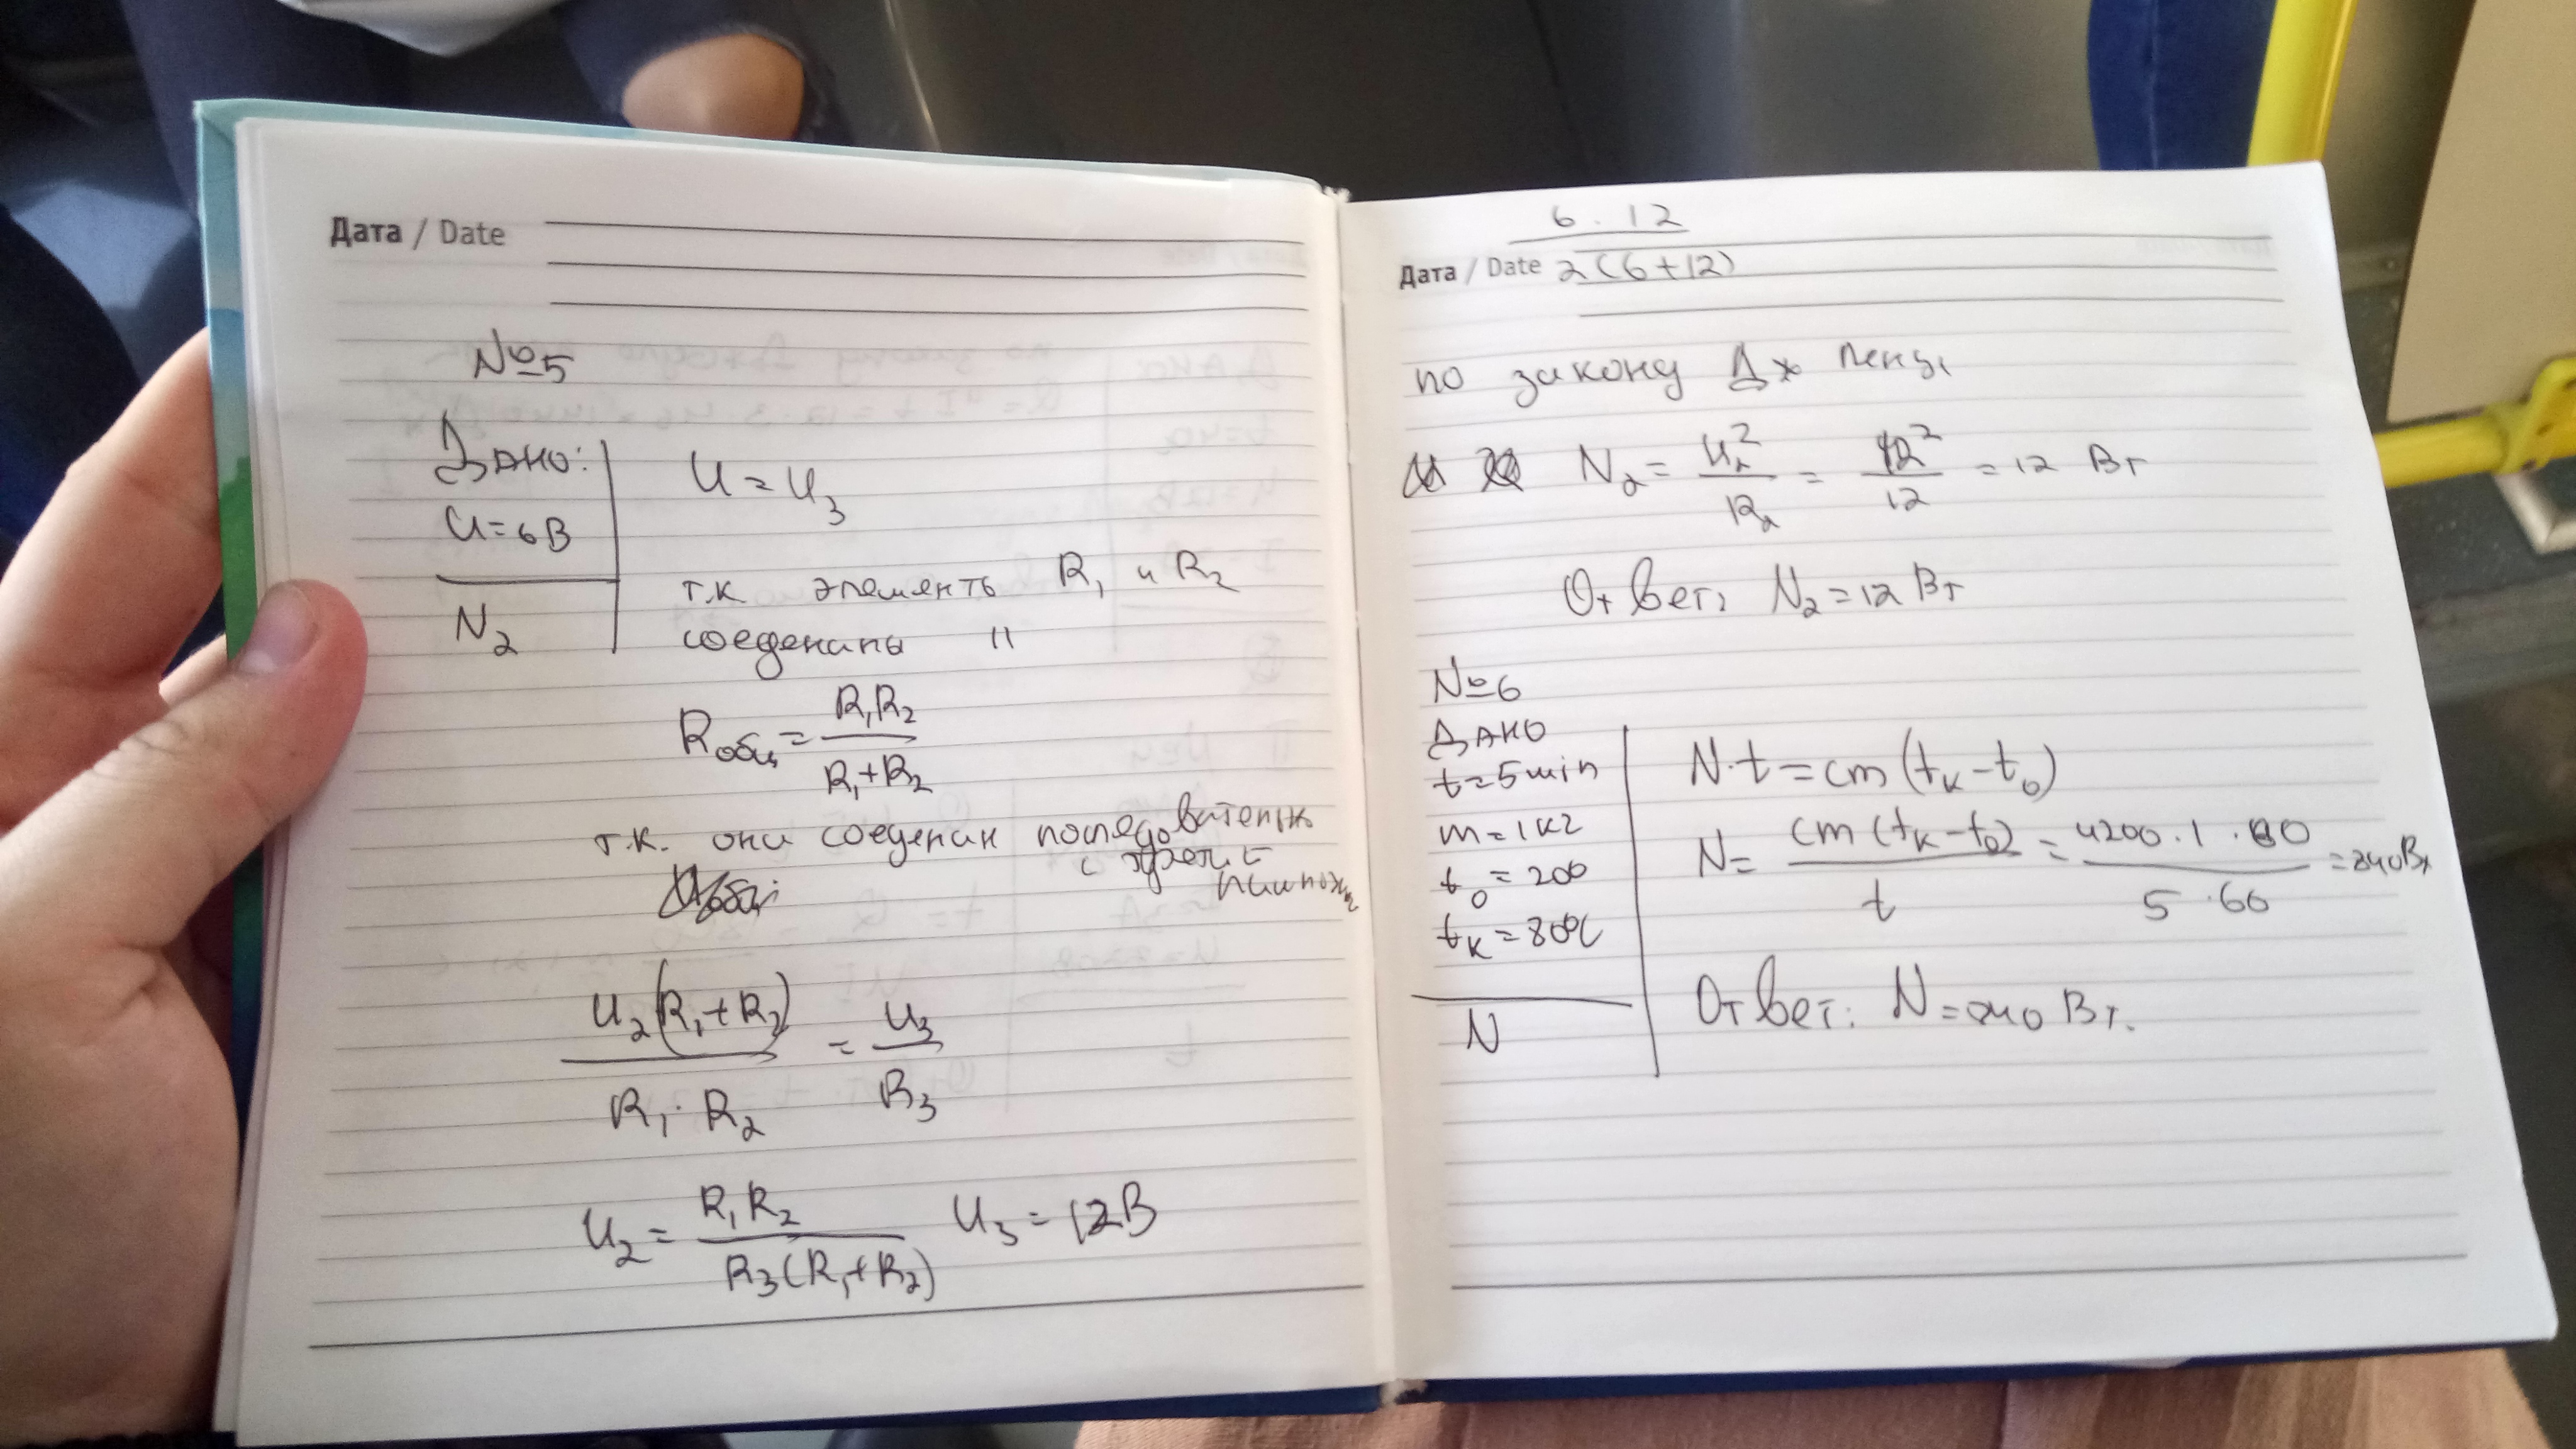 Дата / Date
№5
Дано:
U=6В
N₂
U = U₃
т.к элементы R₁ и R₂
соеденины II
Rобщ = R₁R₂ / R₁+R₂
т.к. они соеденин последовательно
с
U₂(R₁+R₂) / R₁·R₂ = U₃ / R₃
U₂ = R₁R₂ / R₃(R₁+R₂) U₃ = 12В
6 · 12
Дата / Date 2(6+12)
по закону Дж Ленца
N₂ = U₂² / R₂ = 12² / 12 = 12 Вт
Ответ: N₂ = 12 Вт
№6
Дано
t=5min
m=1кг
t₀ = 20°
tк = 80°С
N
N·t = cm(tк-t₀)
N = cm(tк-t₀) / t = 4200·1·60 / 5·60 = 840Вт
Ответ: N = 840 Вт.